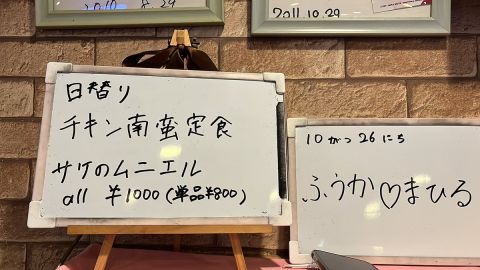 2010.8.29
2011.10.29
日替り
チキン南蛮定食
サケのムニエル
all ¥1000(単品¥800)
10がつ26にち
ふうか♡まひる